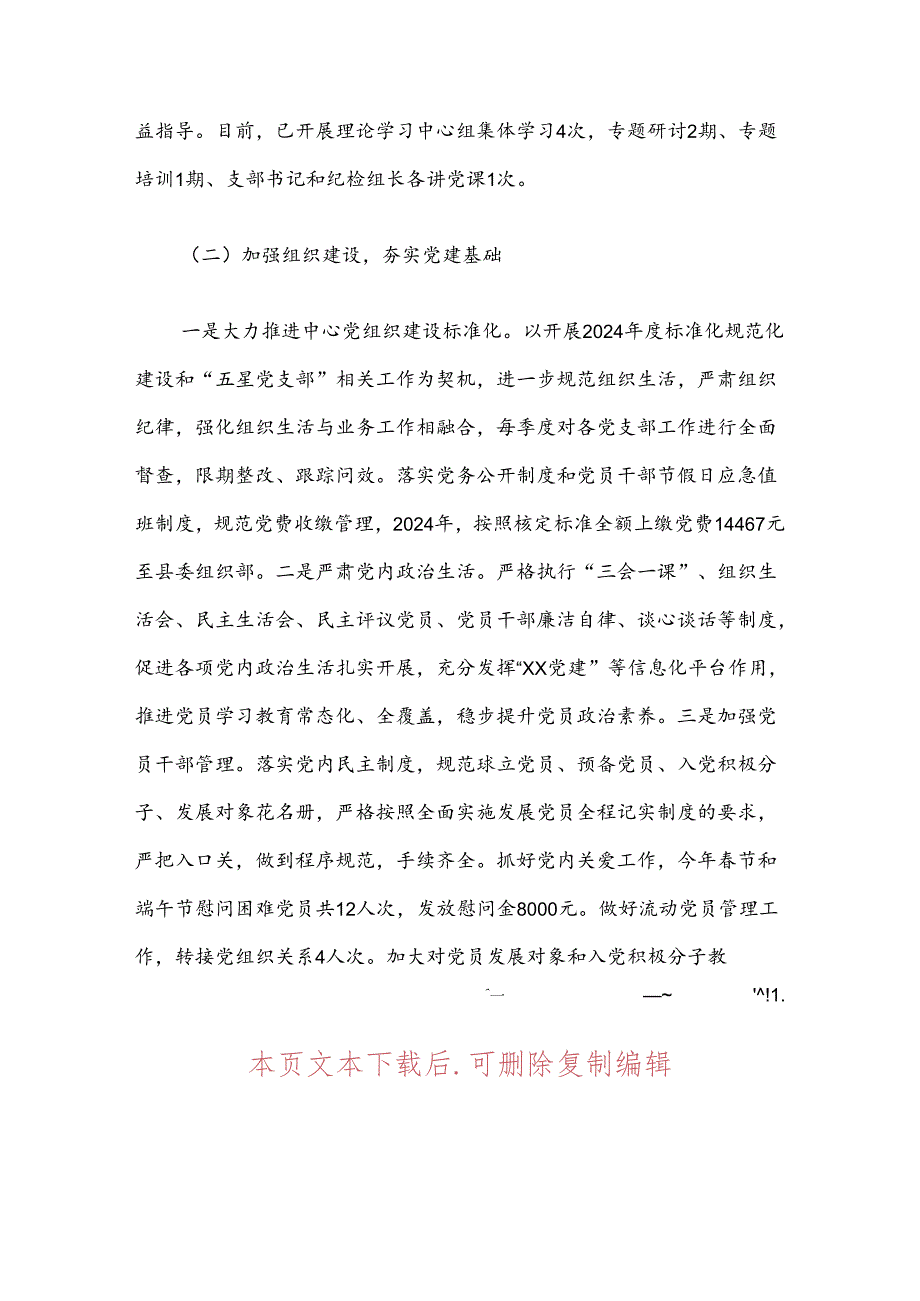 益指导。目前，已开展理论学习中心组集体学习4次，专题研讨2期、专题
培训1期、支部书记和纪检组长各讲党课1次。
（二）加强组织建设，夯实党建基础
一是大力推进中心党组织建设标准化。以开展2024年度标准化规范化
建设和“五星党支部”相关工作为契机，进一步规范组织生活，严肃组织
纪律，强化组织生活与业务工作相融合，每季度对各党支部工作进行全面
督查，限期整改、跟踪问效。落实党务公开制度和党员干部节假日应急值
班制度，规范党费收缴管理，2024年，按照核定标准全额上缴党费14467元
至县委组织部。二是严肃党内政治生活。严格执行“三会一课”、组织生
活会、民主生活会、民主评议党员、党员干部廉洁自律、谈心谈话等制度，
促进各项党内政治生活扎实开展，充分发挥“XX党建”等信息化平台作用，
推进党员学习教育常态化、全覆盖，稳步提升党员政治素养。三是加强党
员干部管理。落实党内民主制度，规范球立党员、预备党员、入党积极分
子、发展对象花名册，严格按照全面实施发展党员全程记实制度的要求，
严把入口关，做到程序规范，手续齐全。抓好党内关爱工作，今年春节和
端午节慰问困难党员共12人次，发放慰问金8000元。做好流动党员管理工
作，转接党组织关系4人次。加大对党员发展对象和入党积极分子教
ˆ一 —~ '^!1.
本页文本下载后.可删除复制编辑